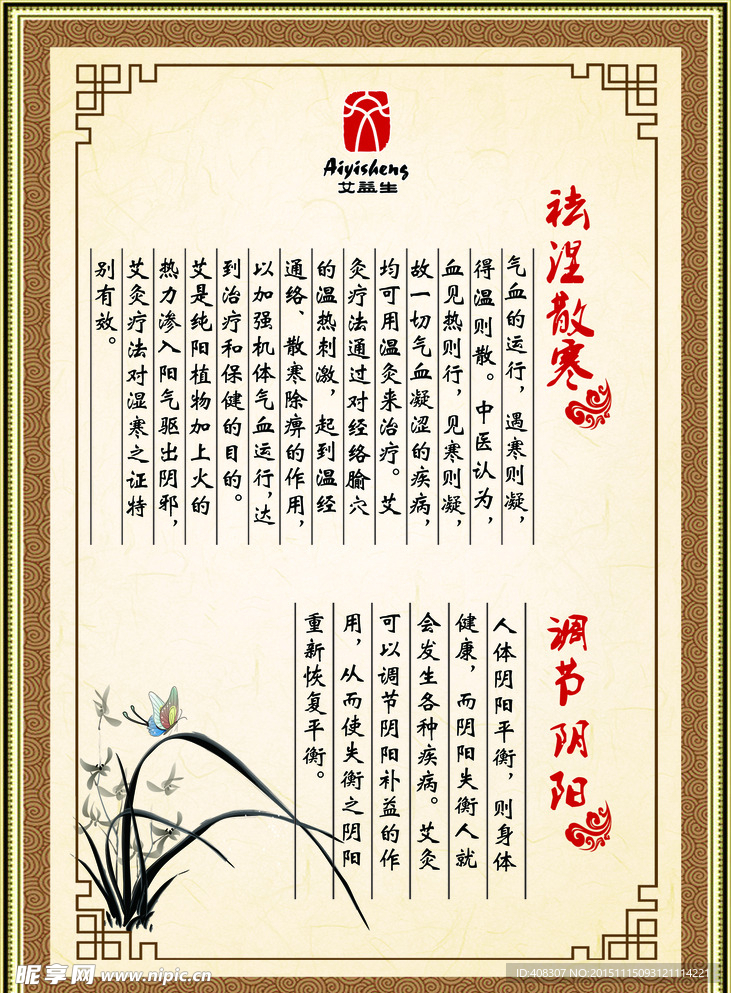 Aiyisheng
艾益生
祛湿散寒
气血的运行，遇寒则凝，
得温则散。中医认为，
血见热则行，见寒则凝，
故一切气血凝涩的疾病，
均可用温灸来治疗。艾
灸疗法通过对经络腧穴
的温热刺激，起到温经
通络、散寒除痹的作用，
以加强机体气血运行，达
到治疗和保健的目的。
艾是纯阳植物加上火的
热力渗入阳气驱出阴邪，
艾灸疗法对湿寒之证特
别有效。
调节阴阳
人体阴阳平衡，则身体
健康，而阴阳失衡人就
会发生各种疾病。艾灸
可以调节阴阳补益的作
用，从而使失衡之阴阳
重新恢复平衡。
昵享网 www.nipic.cn
ID:408307 NO:20151115093121114221